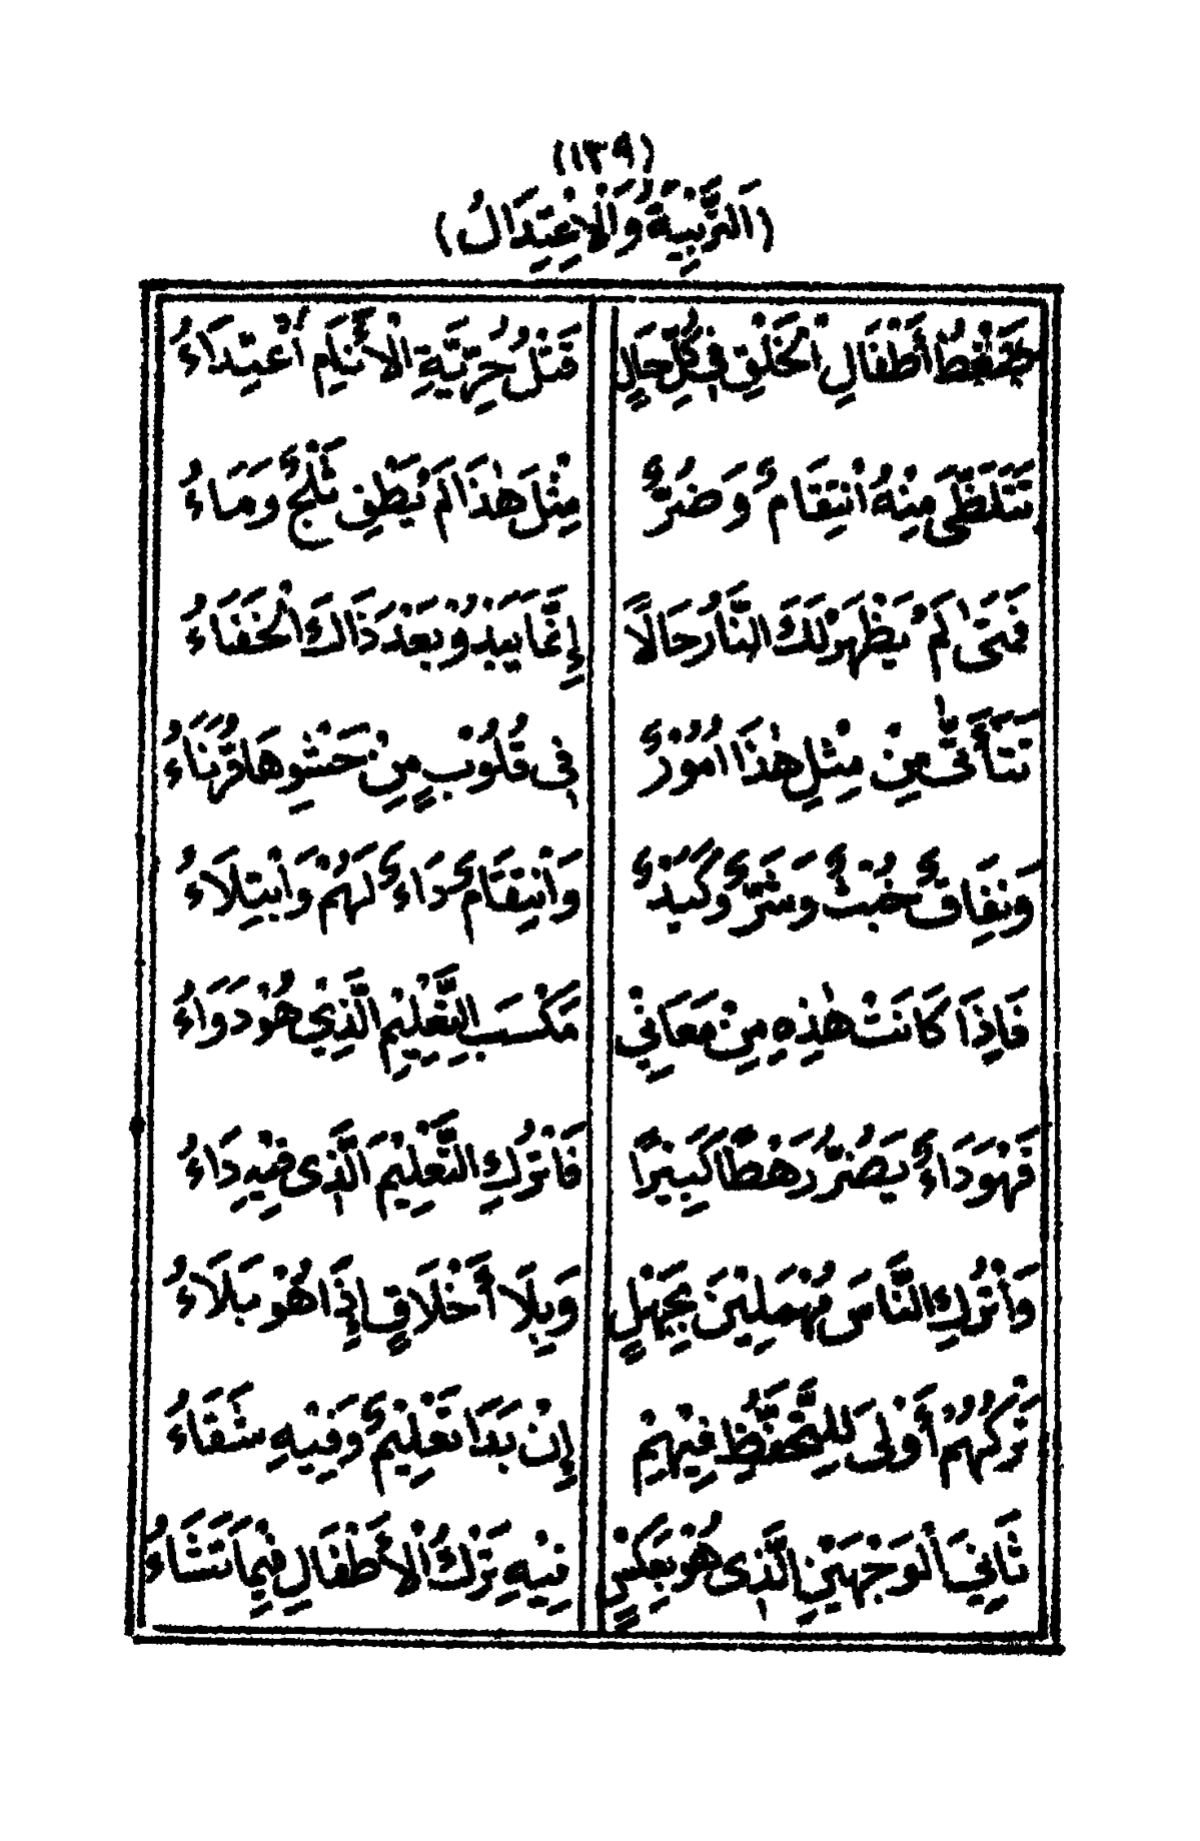 (١٣٩)
(اَلتَّرْبِيَةُ وَالْاِعْتِدَالُ)
ضَغْطُ أَطْفَالِ الْخَلْقِ فِي كُلِّ حَالٍ قَتْلُ حُرِّيَّةِ الْأَنَامِ اعْتِدَاءُ
تَتَلَظَّى مِنْهُ انْتِقَامٌ وَضُرٌّ مِثْلَ هٰذَا لَمْ يُطْفِ ثَلْجٌ وَمَاءُ
فَمَتَى لَمْ يَظْهَرْ لَكَ النَّارُ حَالًا إِنَّمَا يَبْدُو بَعْدَ ذَاكَ الْخَفَاءُ
تَتَأَتَّى مِنْ مِثْلِ هٰذَا اُمُوْرٌ فِي قُلُوْبٍ مِنْ حَشْوِهَا قُرَنَاءُ
وَنِفَاقٌ خُبْثٌ وَشَرٌّ وَكَيْدٌ وَانْتِقَامٌ دَاءٌ لَهُمْ وَابْتِلَاءُ
فَاِذَا كَانَتْ هٰذِهِ مِنْ مَعَانِيْ مَكْسَبِ التَّعْلِيْمِ الَّذِيْ هُوْ دَوَاءُ
فَهُوَ دَاءٌ يَضُرُّ رَهْطًا كَبِيْرًا فَاتْرُكِ التَّعْلِيْمَ الَّذِى فِيْهِ دَاءُ
وَاتْرُكِ النَّاسَ مُهْمَلِيْنَ بِجَهْلٍ وَبِلَا أَخْلَاقٍ إِذَا هُوْ بَلَاءُ
تَرْكُهُمْ أَوْلَى لِلتَّحَفُّظِ فِيْهِمْ إِنْ بَدَا تَعْلِيْمٌ وَفِيْهِ شَقَاءُ
ثَانِيَ الْوَجْهَيْنِ الَّذِى هُوْ بِعَكْسٍ فِيْهِ تَرْكُ الْأَطْفَالِ فِيْمَا تَشَاءُ